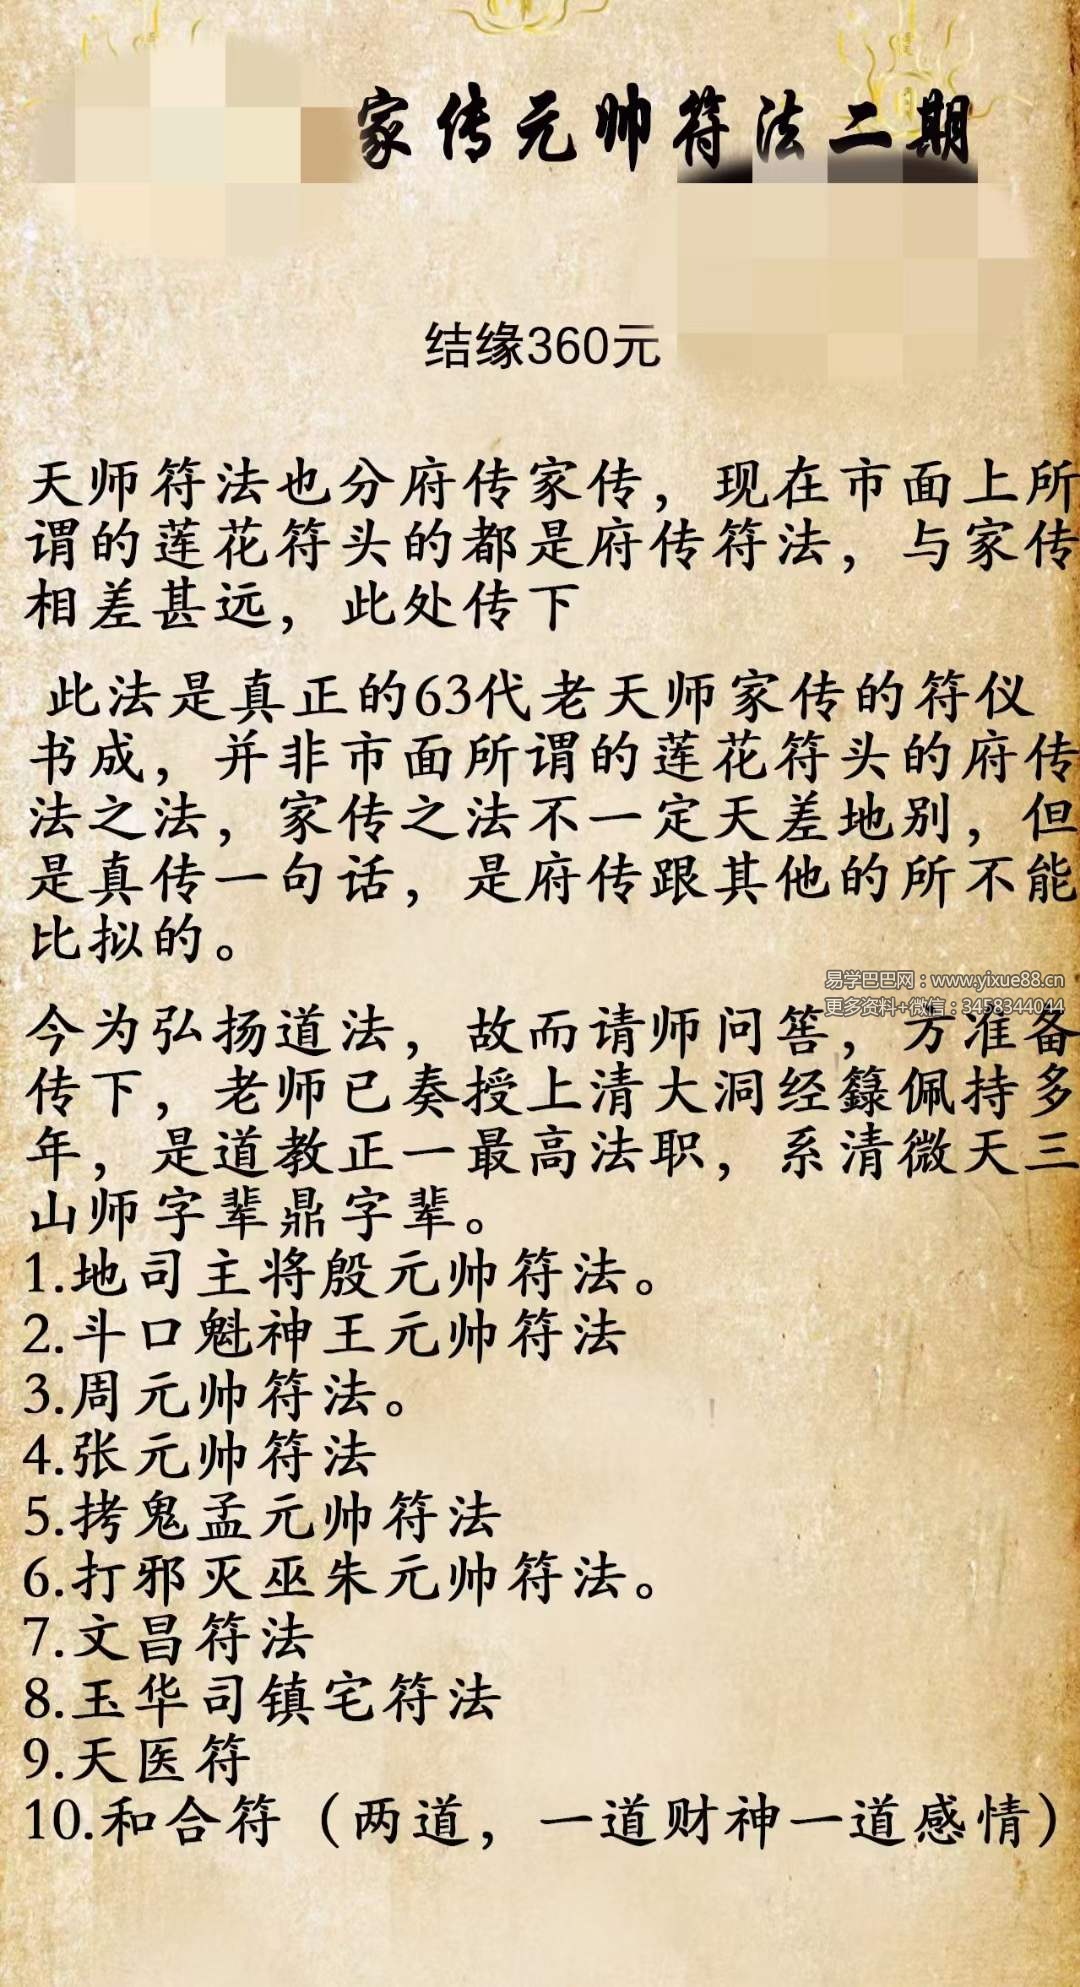 家传元帅符法二期
结缘360元
天师符法也分府传家传，现在市面上所
谓的莲花符头的都是府传符法，与家传
相差甚远，此处传下
此法是真正的63代老天师家传的符仪
书成，并非市面所谓的莲花符头的府传
法之法，家传之法不一定天差地别，但
是真传一句话，是府传跟其他的所不能
比拟的。
易学巴巴网：www.yixue88.cn
更多资料+微信：3458344044
今为弘扬道法，故而请师问筶，方准备
传下，老师已奏授上清大洞经籙佩持多
年，是道教正一最高法职，系清微天三
山师字辈鼎字辈。
1.地司主将殷元帅符法。
2.斗口魁神王元帅符法
3.周元帅符法。
4.张元帅符法
5.拷鬼孟元帅符法
6.打邪灭巫朱元帅符法。
7.文昌符法
8.玉华司镇宅符法
9.天医符
10.和合符（两道，一道财神一道感情）